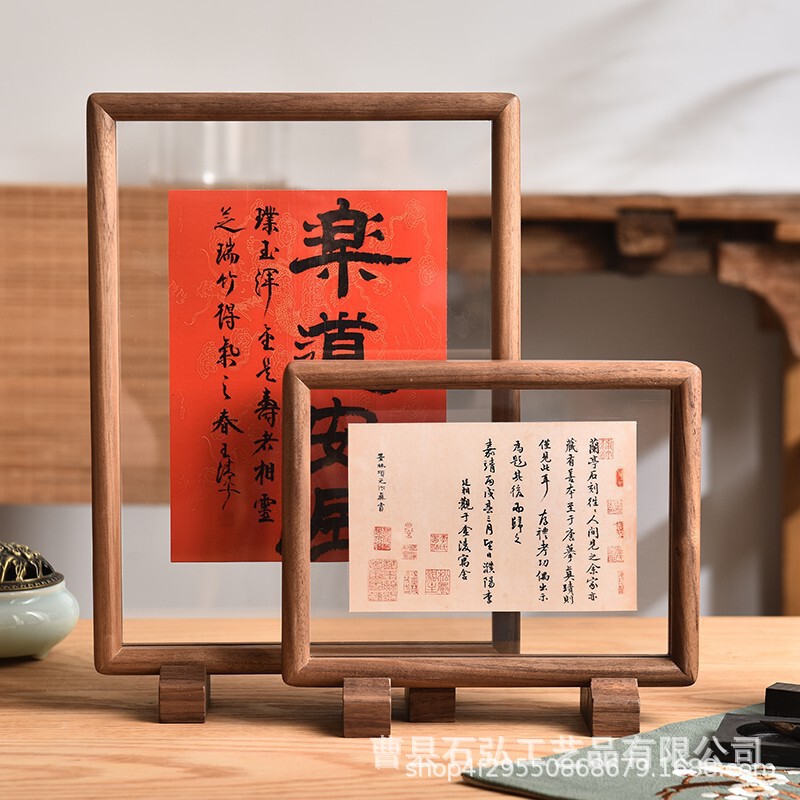 楽道安居
璞玉渾金是壽者相靈
芝瑞竹得氣之春
蘭亭石刻往往人間見之余家亦
藏有善本至于唐摹真蹟則
僅見此耳存禮考功偶出示
為題其後而歸之
嘉靖丙戌春三月望日濮陽李
廷相觀于金陵寓舍
曹县石弘工艺品有限公司
shop4f29550868679.1688.com